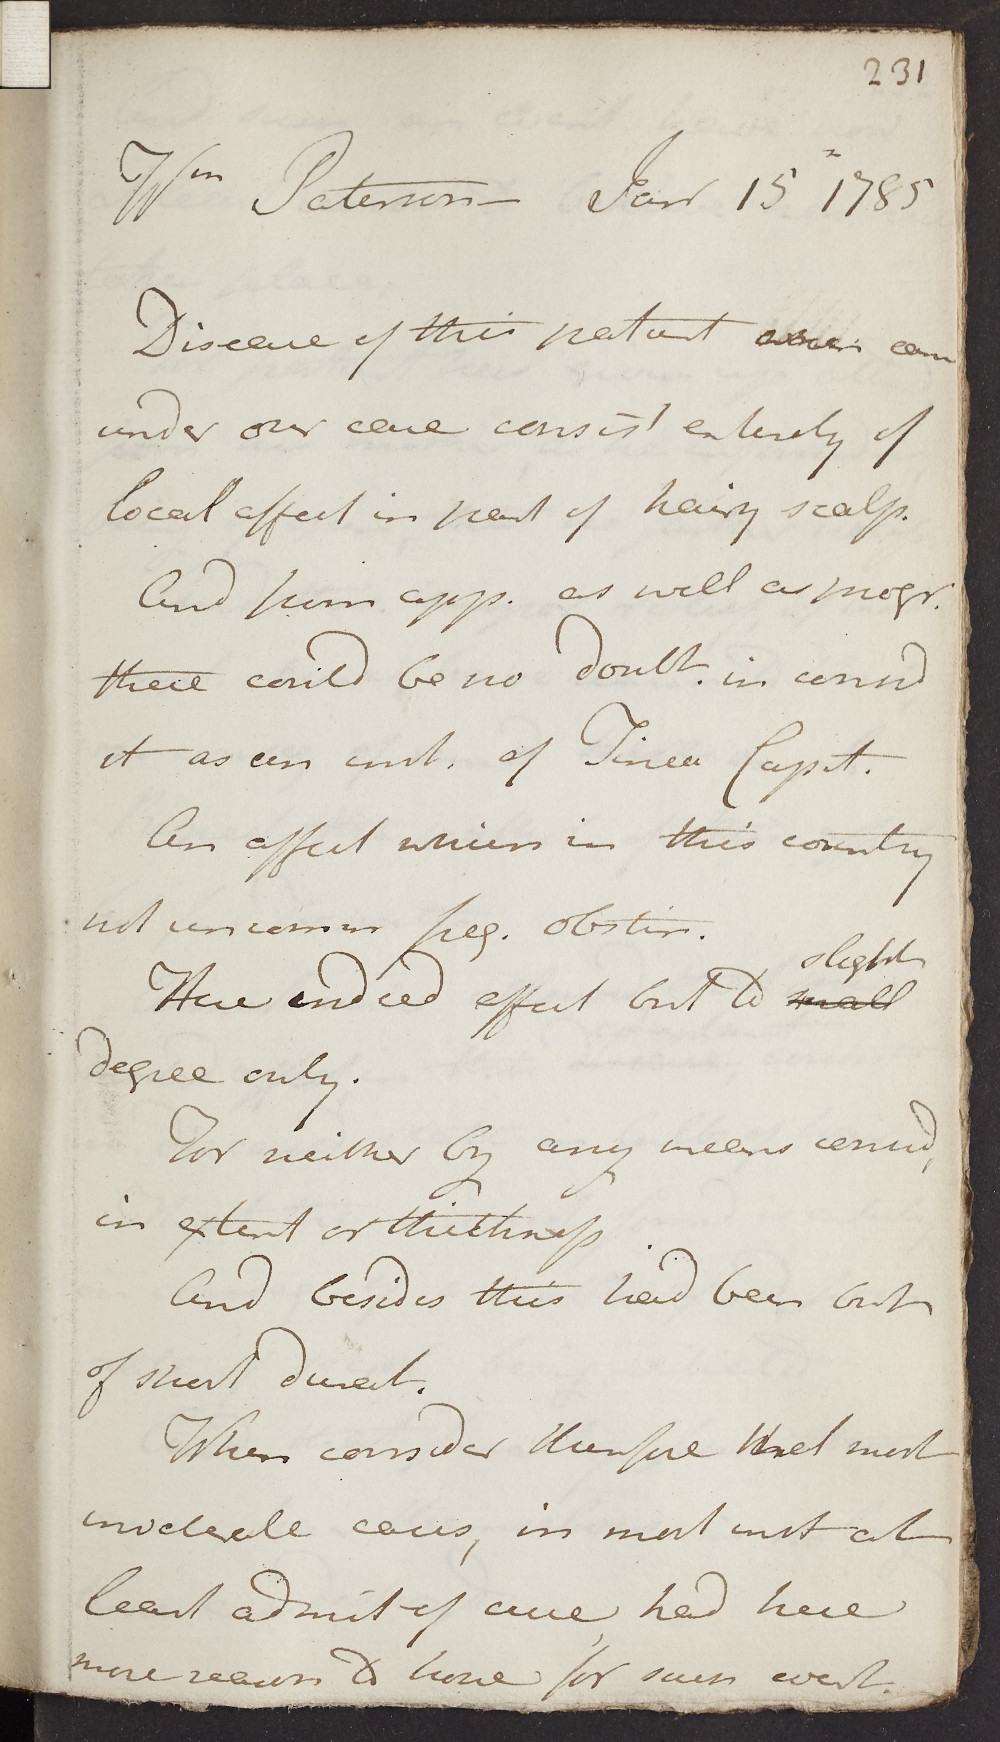 231
Wm Paterson Janr 15th 1785
Disease of this patient when came
under our care consist entirely of
local affect in part of hairy scalp.
And from app. as well as progr.
there could be no doubt. in consid
it as an inst. of Tinea Capit.
An affect which in this country
not uncomm freq. obstin.
Here indeed affect but to slight
small
degree only.
For neither by any means consid,
in extent or thickness
And besides this had been but
of short durat.
When consider therefore that most
moderate cases, in most inst at
least admit of cure, had here
more reason to hope for such event.